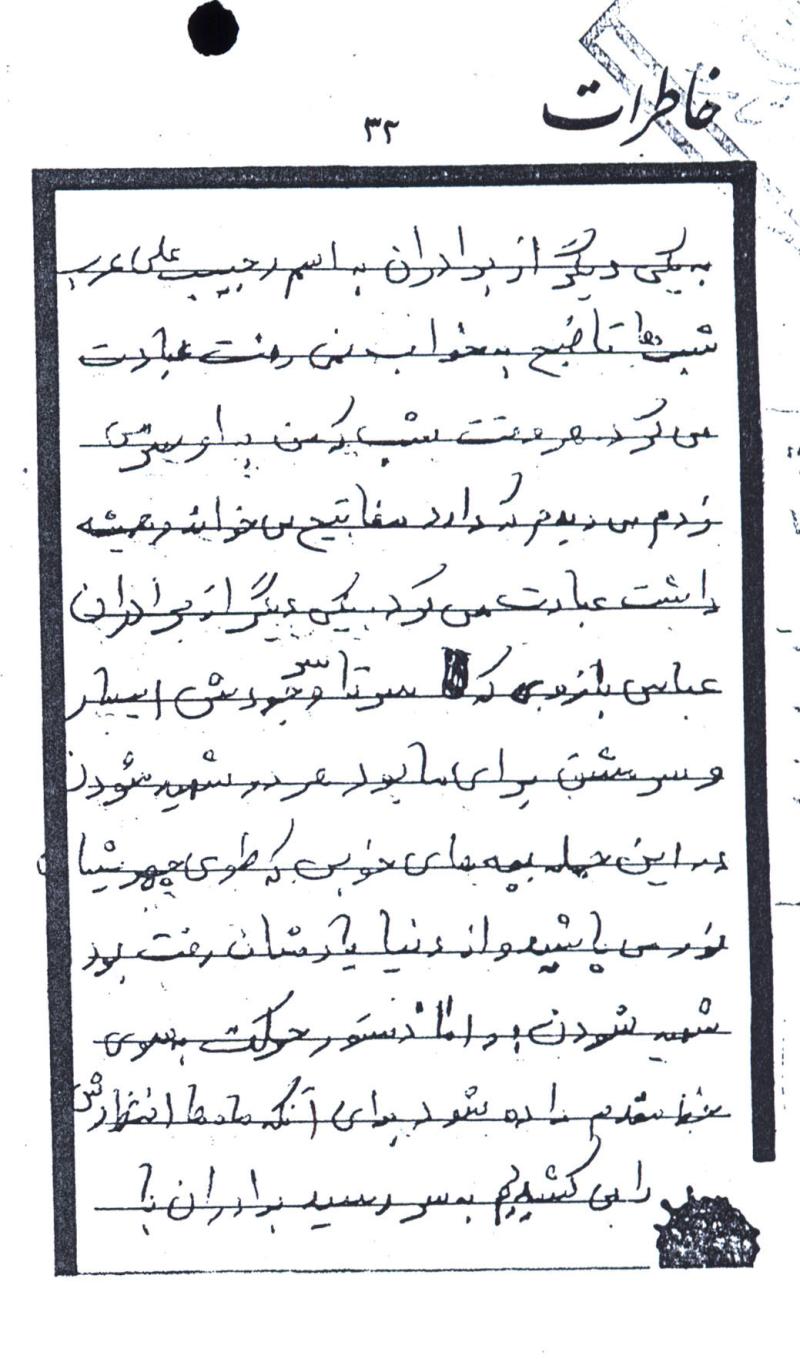 خاطرات
۳۲
به یکی دیگر از برادران به اسم رجبعلی عرب
شب‌ها تا صبح به خواب نمی رفت عبادت
می کرد هر وقت شب که من به او سر می
زدم می دیدم که دارد مفاتیح می خواند و همیشه
داشت عبادت می کرد. یکی دیگر از برادران
عباس بازوی که سرتا سر وجودش ایسار
و سرمشق برای ما بود در شهید شودن
در این حمله بچه های خوبی که طوی چهرشان
نور می پاشید و از دنیا یادشان رفت بود
شهید شودن، و اما دستور حرکت به سوی
خط مقدم داده شود برای آنکه ماه‌ها انتظارش
را می کشیدیم به سر رسید برادران با